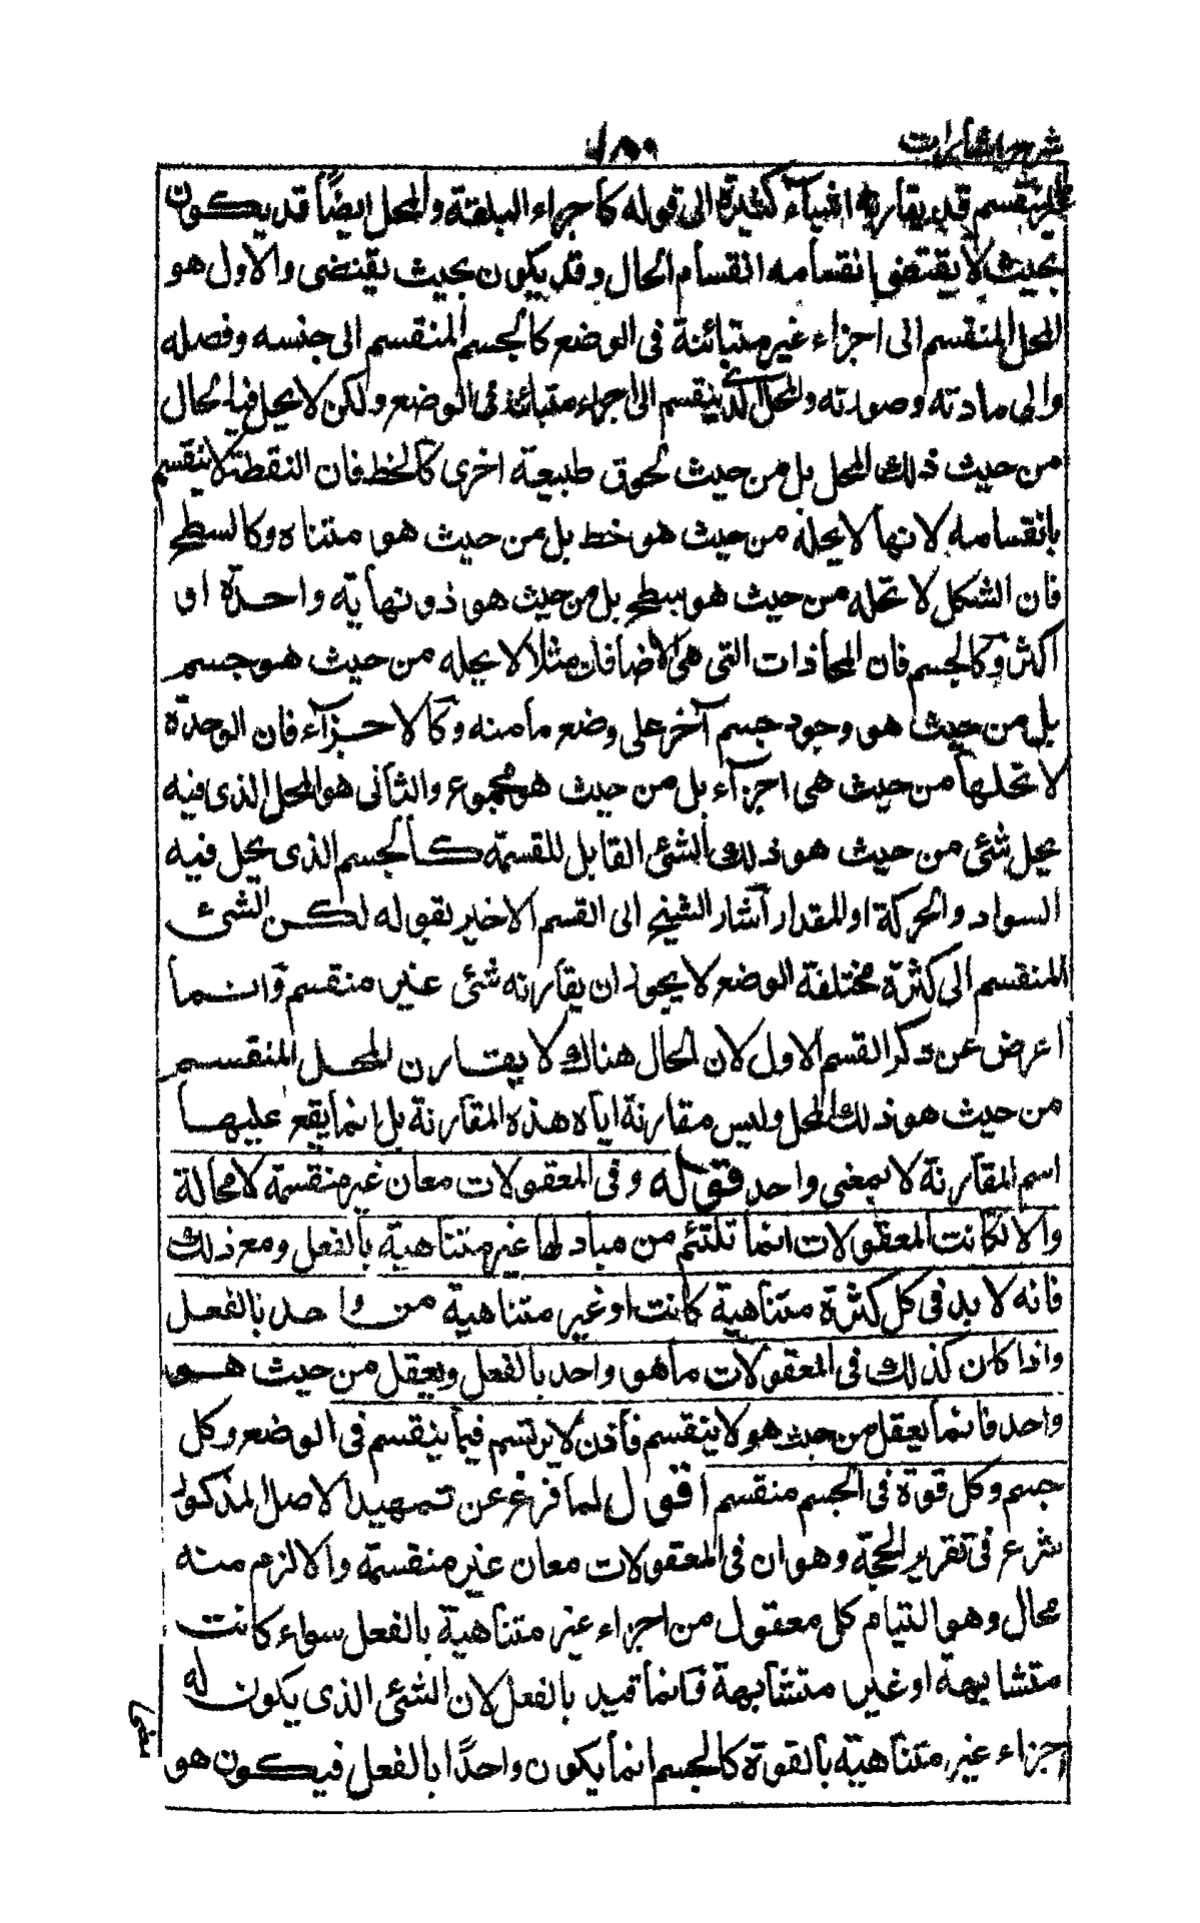 شرح اشارات
غير منقسم قد يقارنه اشياء كثيرة الى قوله كأجزاء البلقة والمحل ايضًا قد يكون
بحيث لا يقتضى انقسامه انقسام الحال وقد يكون بحيث يقتضى والاول هو
المحل المنقسم الى اجزاء غير متبائنة فى الوضع كالجسم المنقسم الى جنسه وفصله
والى مادته وصورته والمحل الذى ينقسم الى اجزاء متبائنة فى الوضع ولكن لا يحل فيه الحال
من حيث ذلك المحل بل من حيث لحوق طبيعة اخرى كالخط فان النقطة لا ينقسم
بانقسامه لانها لا يحله من حيث هو خط بل من حيث هو متناه وكالسطح
فان الشكل لا تحله من حيث هو سطح بل من حيث هو ذو نهاية واحدة او
اكثر وكالجسم فان المحاذات التى هى الاضافات مثلا لا يحله من حيث هو جسم
بل من حيث هو وجود جسم آخر على وضع ما منه وكالاجزآء فان الوحدة
لا تحلها من حيث هى اجزآء بل من حيث هو مجموع والثانى هو المحل الذى فيه
يحل شئ من حيث هو ذلك الشئ القابل للقسمة كالجسم الذى يحل فيه
السواد والحركة او المقدار آشار الشيخ الى القسم الاخير بقوله لكن الشئ
المنقسم الى كثرة مختلفة الوضع لا يجوز ان يقارنه شئ غير منقسم وانما
اعرض عن ذكر القسم الاول لان الحال هناك لا يقارن المحل المنقسم
من حيث هو ذلك المحل وليس مقارنة اياه هذه المقارنة بل انما يقع عليها
اسم المقارنة لا بمعنى واحد قوله وفى المعقولات معان غير منقسمة لا محالة
والا لكانت المعقولات انما تلتئم من مباد لها غير متناهية بالفعل ومع ذلك
فانه لا بد فى كل كثرة متناهية كانت او غير متناهية من واحد بالفعل
واذا كان كذلك فى المعقولات ما هو واحد بالفعل ويعقل من حيث هو
واحد فانما يعقل من حيث هو لا ينقسم فأذن لا يرتسم فيما ينقسم فى الوضع وكل
جسم وكل قوة فى الجسم منقسم اقول لما فرغ عن تمهيد الاصل المذكور
شرع فى تقرير الحجة وهو ان فى المعقولات معان غير منقسمة والا لزم منه
محال وهو التيام كل معقول من اجزاء غير متناهية بالفعل سواء كانت
متشابهة او غير متشابهة فانما قيد بالفعل لان الشئ الذى يكون له
اجزاء غير متناهية بالقوة كالجسم انما يكون واحدًا بالفعل فيكون هو